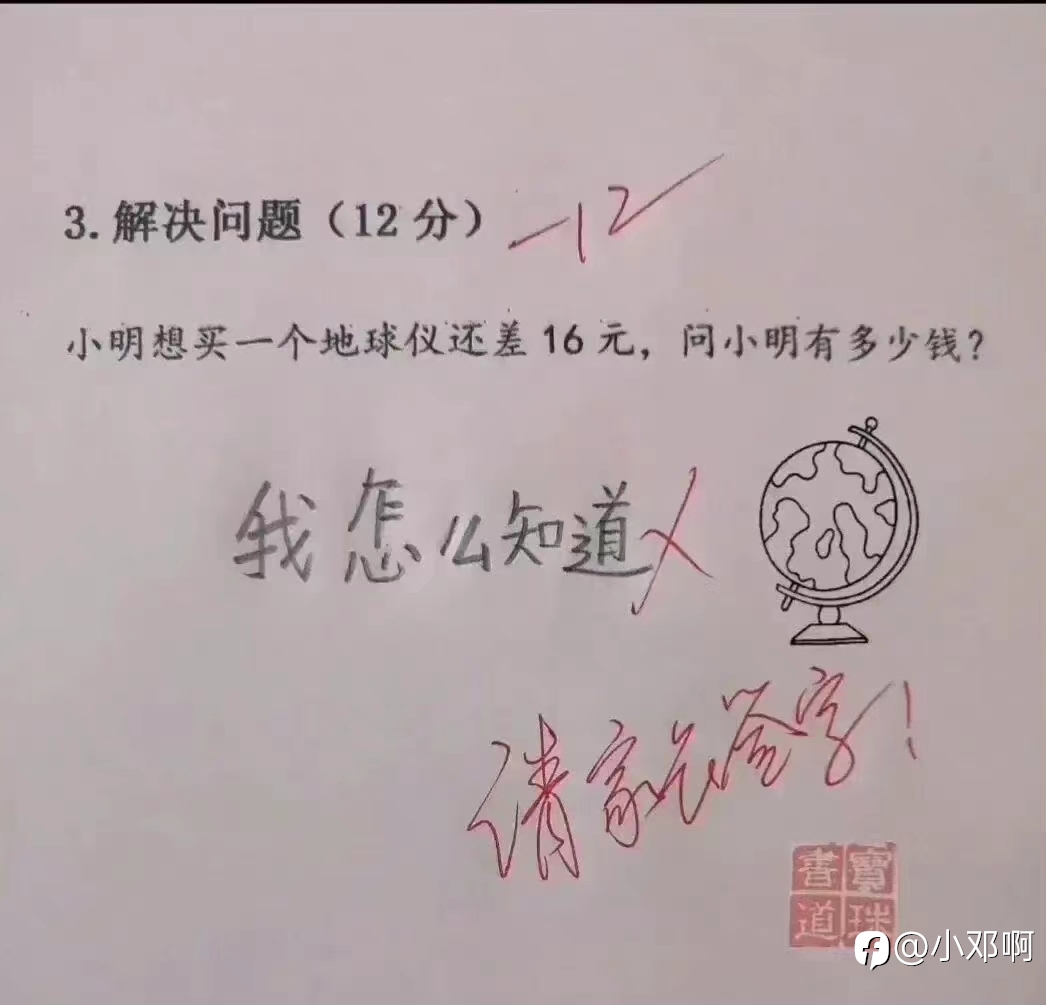 3.解决问题（12分）
-12
小明想买一个地球仪还差16元，问小明有多少钱？
我怎么知道
请家长签字！
書寶
道珠
@小邓啊